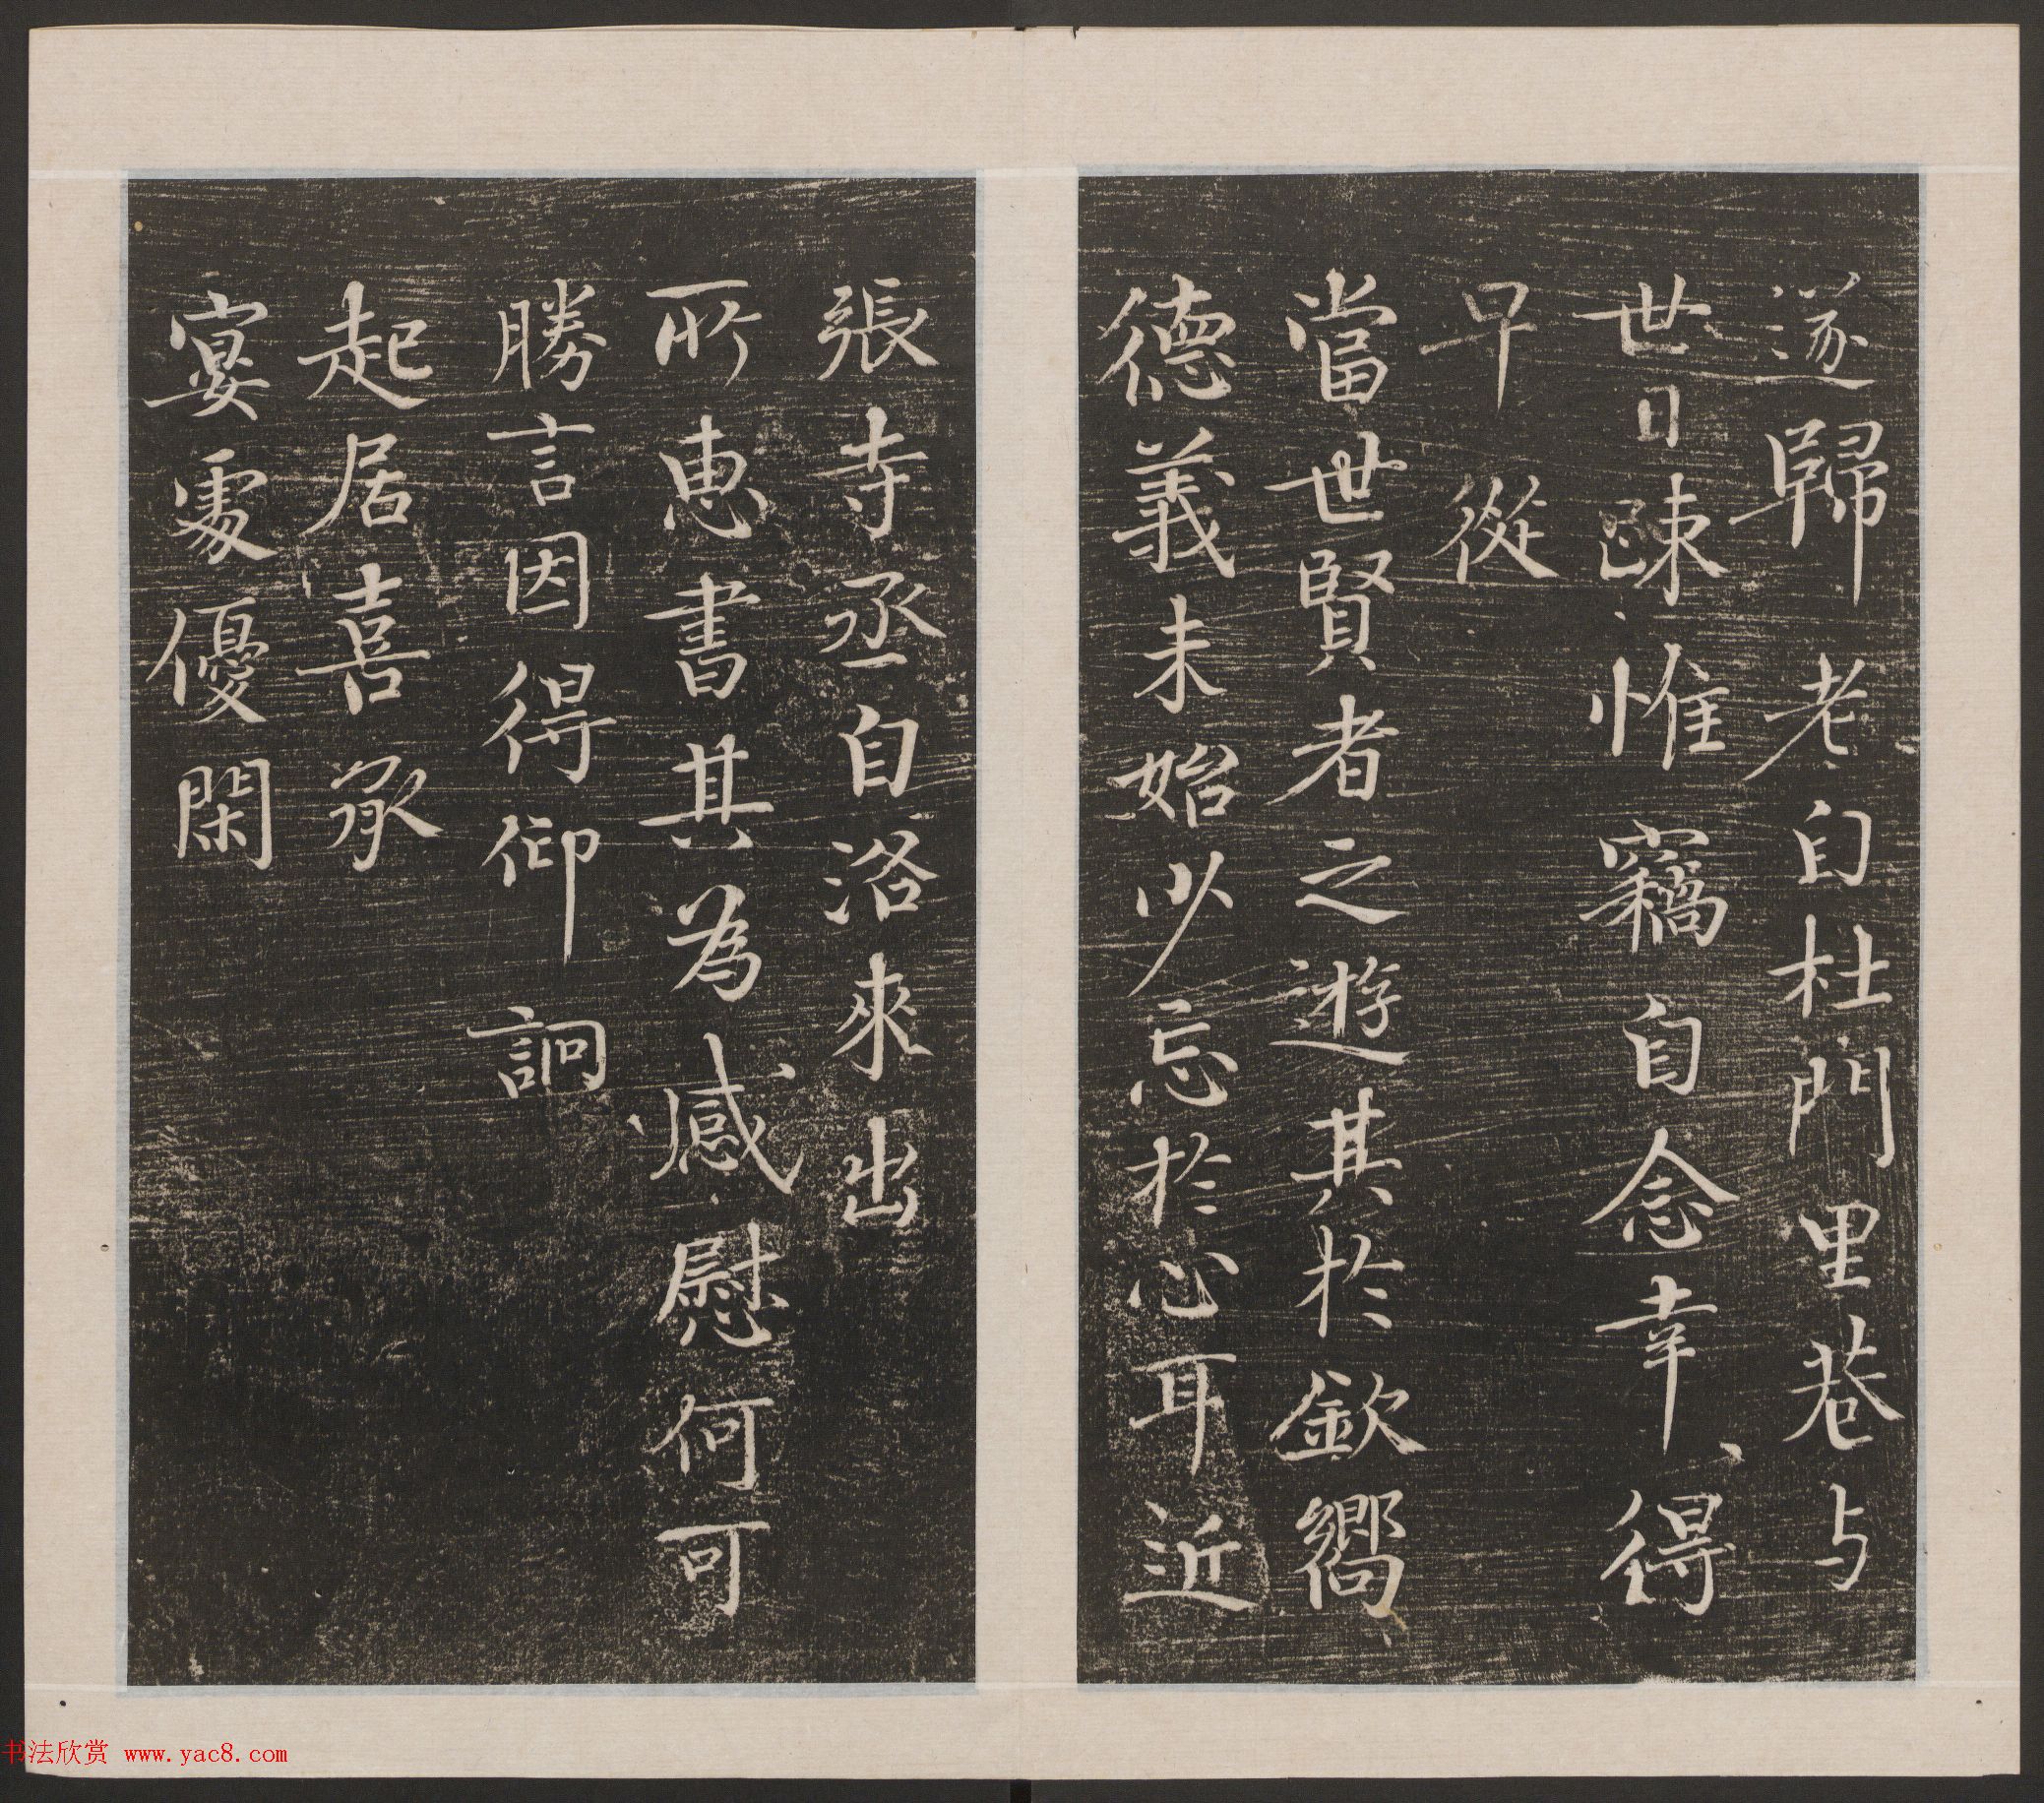 遂歸老自杜門里巷与
世日踈惟竊自念幸得
早從
當世賢者之遊其於欽嚮
德義未始少忘於心耳近
張寺丞自洛來出
所惠書其為感慰何可
勝言因得仰詗
起居喜承
宴處優閑
书法欣赏 www.yac8.com